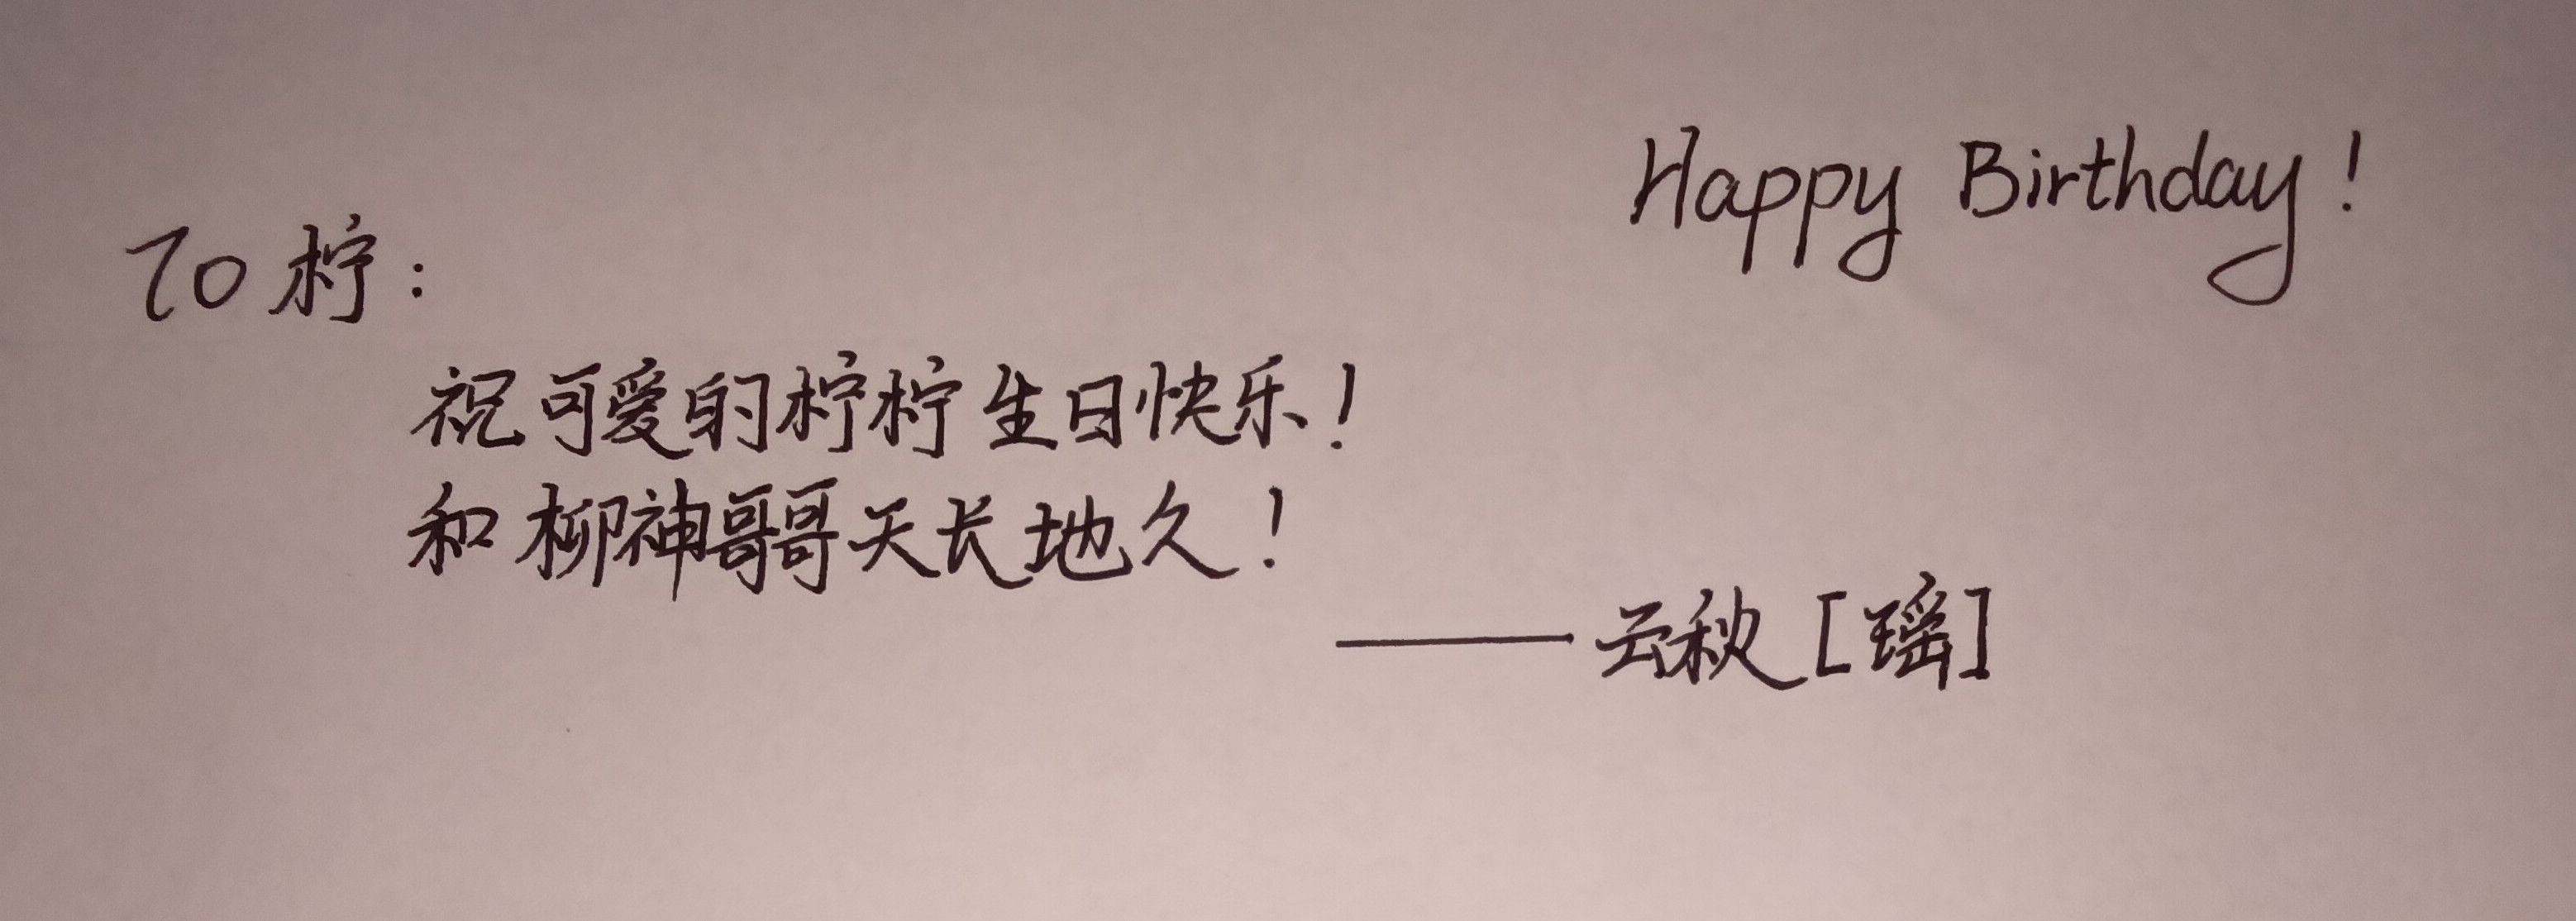 Happy Birthday!
To 柠:
祝可爱的柠柠生日快乐!
和柳神哥哥天长地久!
——云秋[瑶]